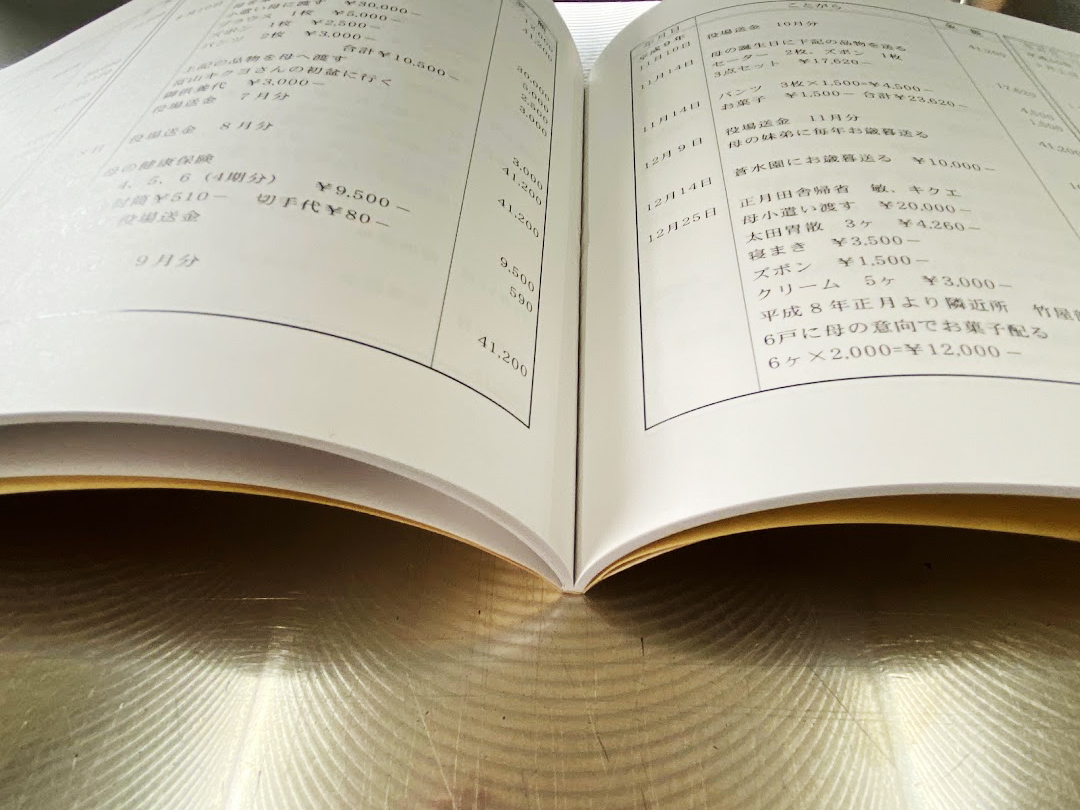 ¥30,000－
小遣い母に渡す
ブラウス 1枚 ¥5,000－
ズボン 1枚 ¥2,500－
パンツ 2枚 ¥3,000－
合計¥10,500－
上記の品物を母へ渡す
富山キクヨさんの初盆に行く
御供養代 ¥3,000－
役場送金 7月分
役場送金 8月分
母の健康保険
4、5、6（4期分） ¥9,500－
封筒¥510－ 切手代¥80－
役場送金
9月分
41,200
30,000
5,000
2,500
3,000
3,000
41,200
41,200
9,500
590
41,200
年月日 ことがら 金額
平成9年
11月10日 役場送金 10月分 41,200
11月14日 母の誕生日に下記の品物を送る
セーター 2枚、ズボン 1枚
3点セット ¥17,620－ 17,620
11月14日 パンツ 3枚×1,500=¥4,500－ 4,500
お菓子 ¥1,500－ 合計¥23,620－ 1,500
12月9日 役場送金 11月分 41,200
母の妹弟に毎年お歳暮送る
12月14日 蒼水園にお歳暮送る ¥10,000－
12月25日 正月田舎帰省 敏、キクエ
母小遣い渡す ¥20,000－
太田胃散 3ヶ ¥4,260－
寝まき ¥3,500－
ズボン ¥1,500－
クリーム 5ヶ ¥3,000－
平成8年正月より隣近所 竹屋
6戸に母の意向でお菓子配る
6ヶ×2,000=¥12,000－